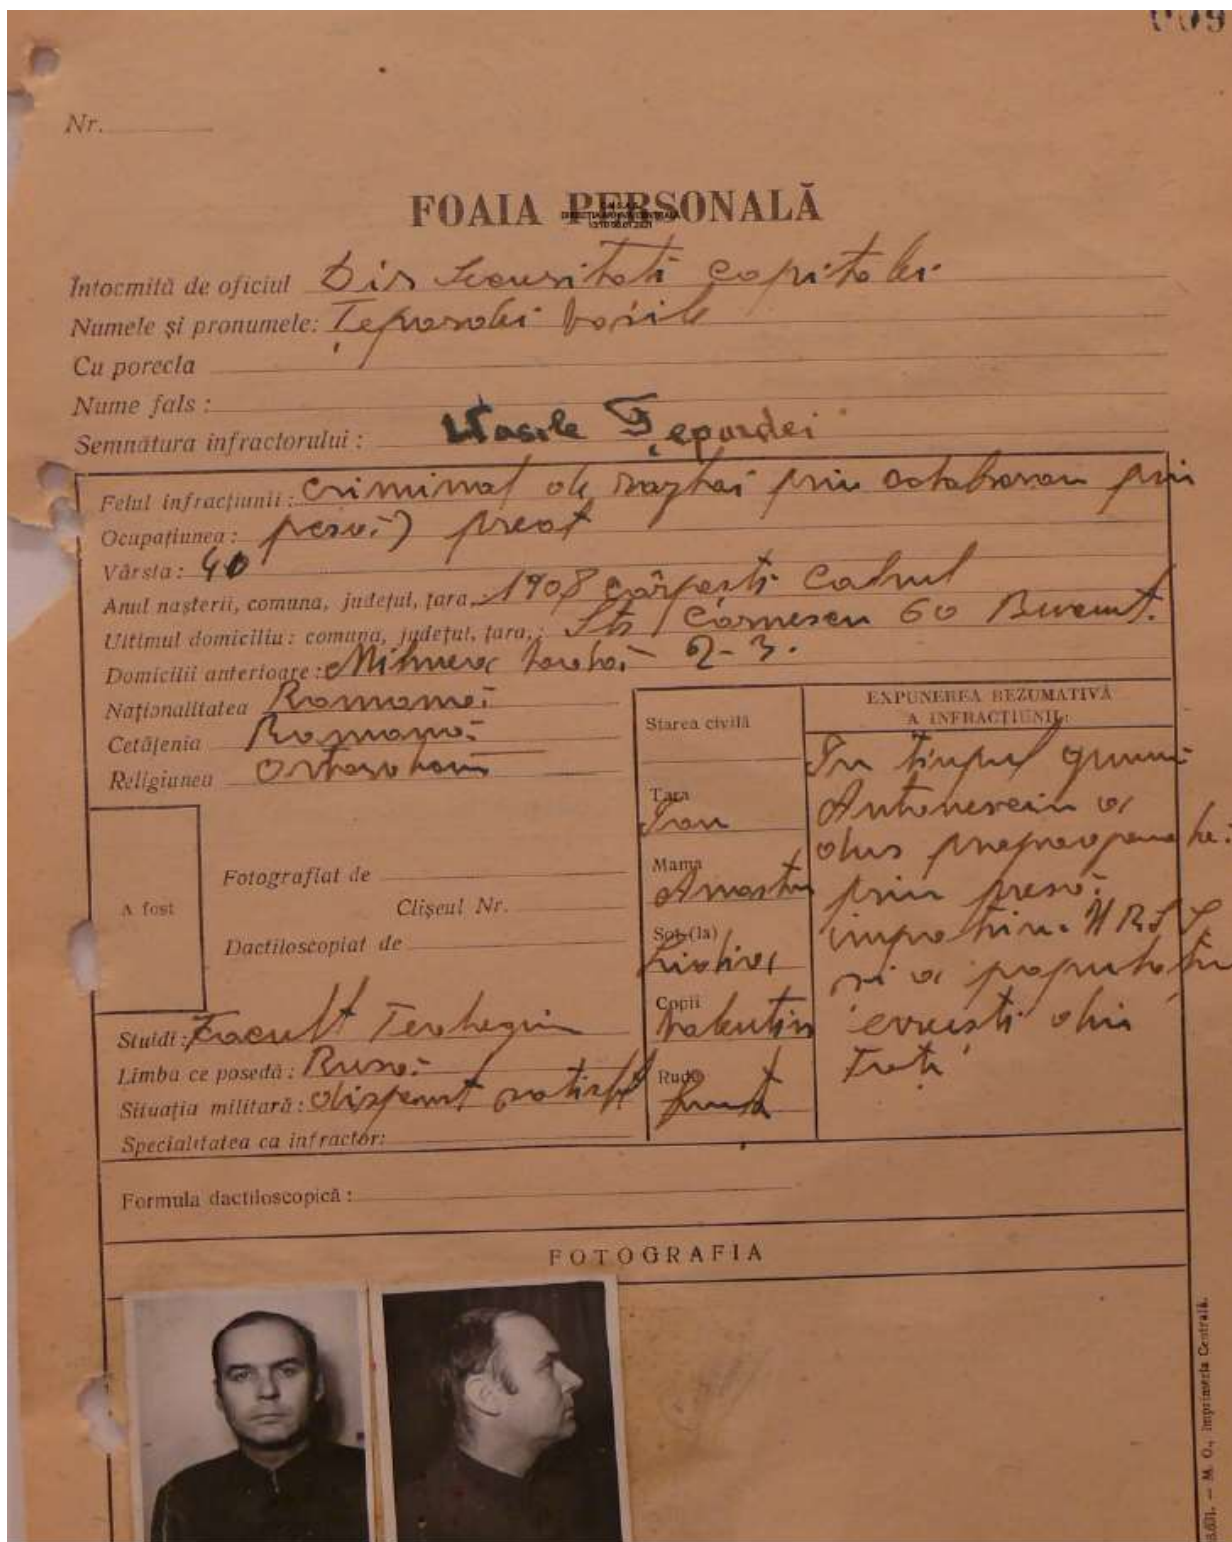 009
Nr.
FOAIA PERSONALĂ
Intocmită de oficiul Dir Securitati capitalei
Numele și pronumele: Țepordei Vasile
Cu porecla
Nume fals :
Semnătura infractorului : Vasile Țepordei
Felul infracțiunii : Criminal de razboi prin colaborare prin
Ocupațiunea : presă) preot
Vârsta : 40
Anul nașterii, comuna, județul, țara, 1908 Cârpești Cahul
Ultimul domiciliu : comuna, județul, țara, : Str 60 Bucureșt.
Domicilii anterioare : Mihnea Vodă 2-3.
Naționalitatea Romană
Cetățenia Romană
Religiunea Ortodoxă
A fost
Fotografiat de
Clișeul Nr.
Dactiloscopiat de
Studii : Facult Teologie
Limba ce posedă : Rusă
Situația militară : dispensat
Specialitatea ca infractor:
Starea civilă
Tata
Ion
Mama
Soț (ia)
Copii
Valentin
Rude
EXPUNEREA REZUMATIVĂ
A INFRACȚIUNII:
In timpul guvernă
Antonescu a
dus propaganda
prin presă
impotriva U R S S,
si a populatiei
evreiești din
Formula dactiloscopică :
FOTOGRAFIA
M. O., Imprimeria Centrală.